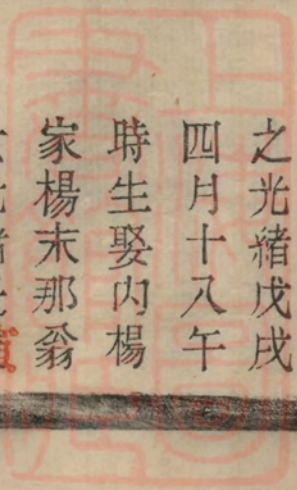 之光緒戊戌
四月十八午
時生娶内楊
家楊末那翁